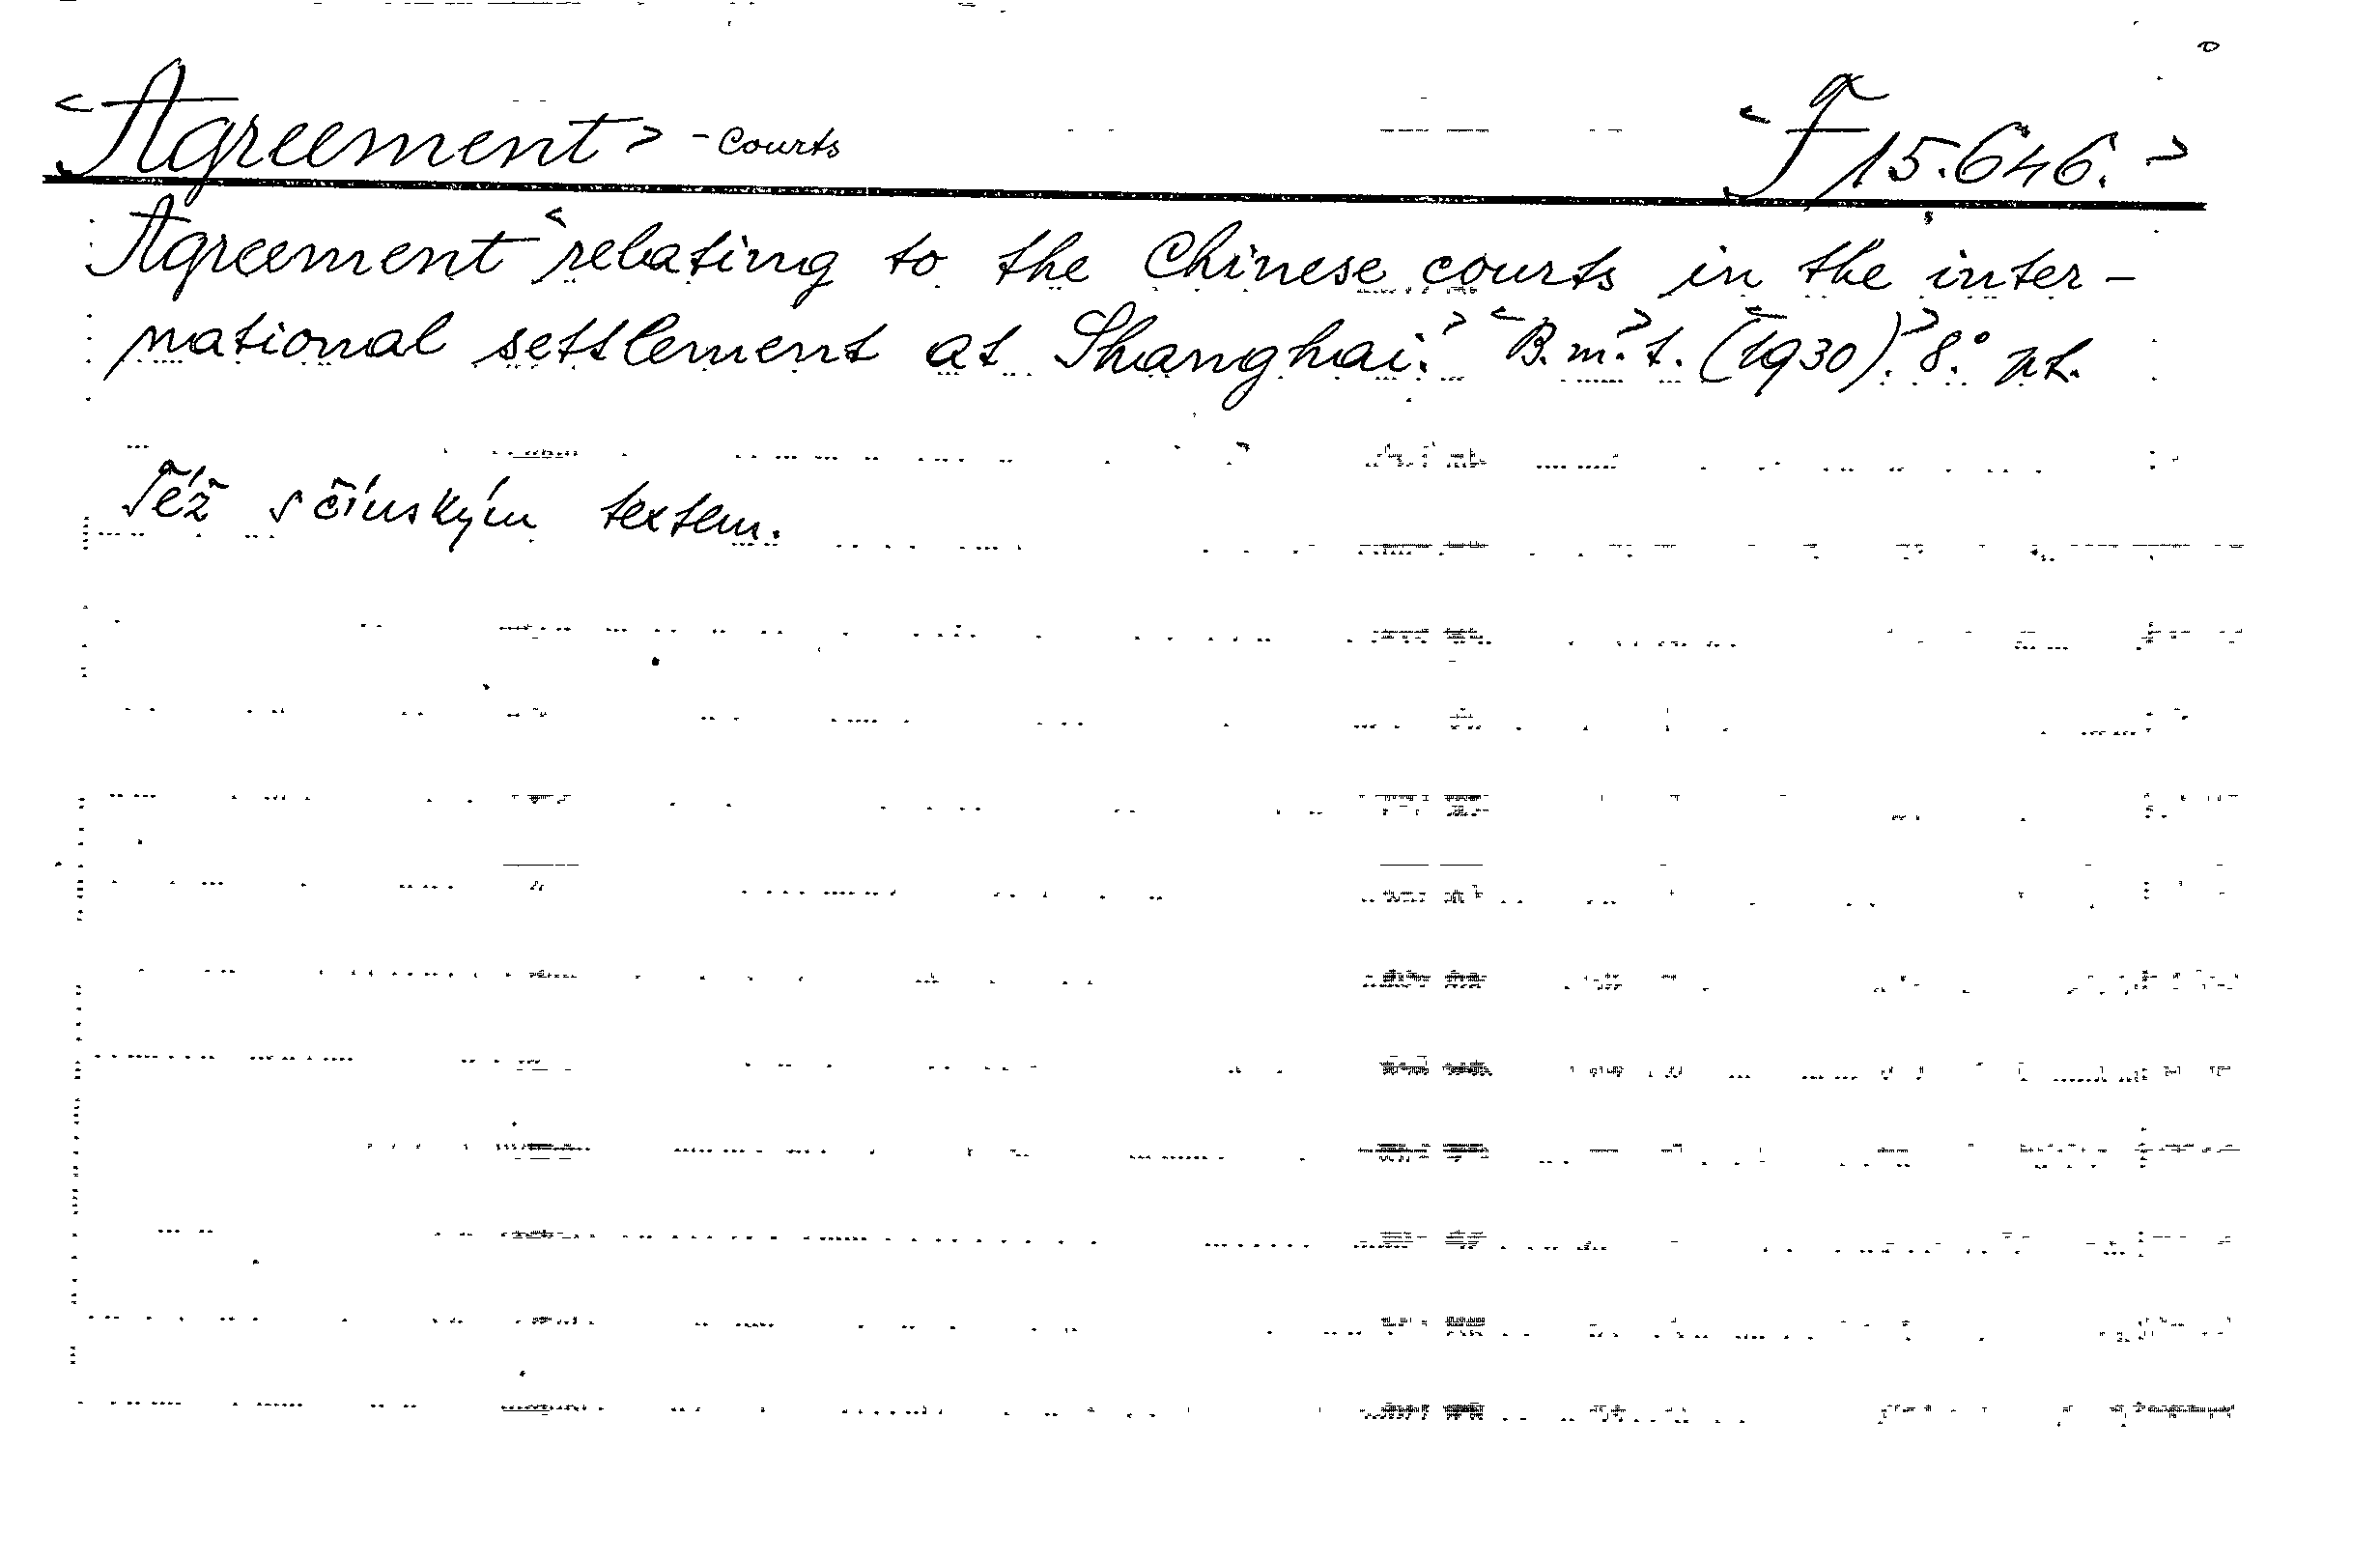 <Agreement> - Courts <F 15.646.>
Agreement <relating to the Chinese courts in the inter-
national settlement at Shanghai.> <B.m.> t. (<1930).> 8.°
Též s čínským textem.